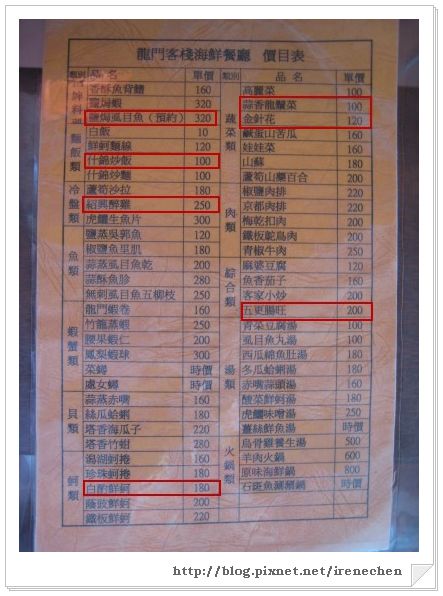 龍門客棧海鮮餐廳 價目表
類別 品名 單價
香酥魚背鰭 160
鹽焗蝦 320
鹽焗虱目魚(預約) 320
麵飯類
白飯 10
鮮蚵麵線 120
什錦炒飯 100
什錦炒麵 100
冷盤類
蘆筍沙拉 180
紹興醉雞 250
虎鱺生魚片 300
魚類
鹽蒸吳郭魚 120
椒鹽魚里肌 180
蒜蒸虱目魚乾 200
蒜酥魚肚 280
無刺虱目魚五柳枝 250
蝦蟹類
龍門蝦卷 160
竹龍蒸蝦 250
腰果蝦仁 200
鳳梨蝦球 300
菜蟳 時價
處女蟳 時價
貝類
蒜蒸赤嘴 160
絲瓜蛤蜊 180
塔香海瓜子 220
塔香竹蚶 280
蚵類
潟湖蚵捲 160
珍珠蚵捲 180
白酌鮮蚵 180
蔭豉鮮蚵 200
鐵板鮮蚵 220
類別 品名 單價
蔬菜類
高麗菜 100
蒜香龍鬚菜 100
金針花 120
鹹蛋山苦瓜 160
娃娃菜 160
山蘇 180
蘆筍山藥百合 200
肉類
椒鹽肉排 220
京都肉排 220
梅乾扣肉 200
鐵板鴕鳥肉 200
青椒牛肉 250
綜合類
麻婆豆腐 120
魚香茄子 160
客家小炒 200
五更腸旺 200
湯類
青菜豆腐湯 100
虱目魚丸湯 100
西瓜綿魚肚湯 180
冬瓜蛤蜊湯 180
赤嘴蒜頭湯 180
酸菜鮮蚵湯 180
虎鱺味噌湯 250
薑絲鮮魚湯 時價
火鍋類
烏骨雞養生湯 500
羊肉火鍋 600
原味海鮮鍋 800
石斑魚涮涮鍋
http://blog.pixnet.net/irenechen